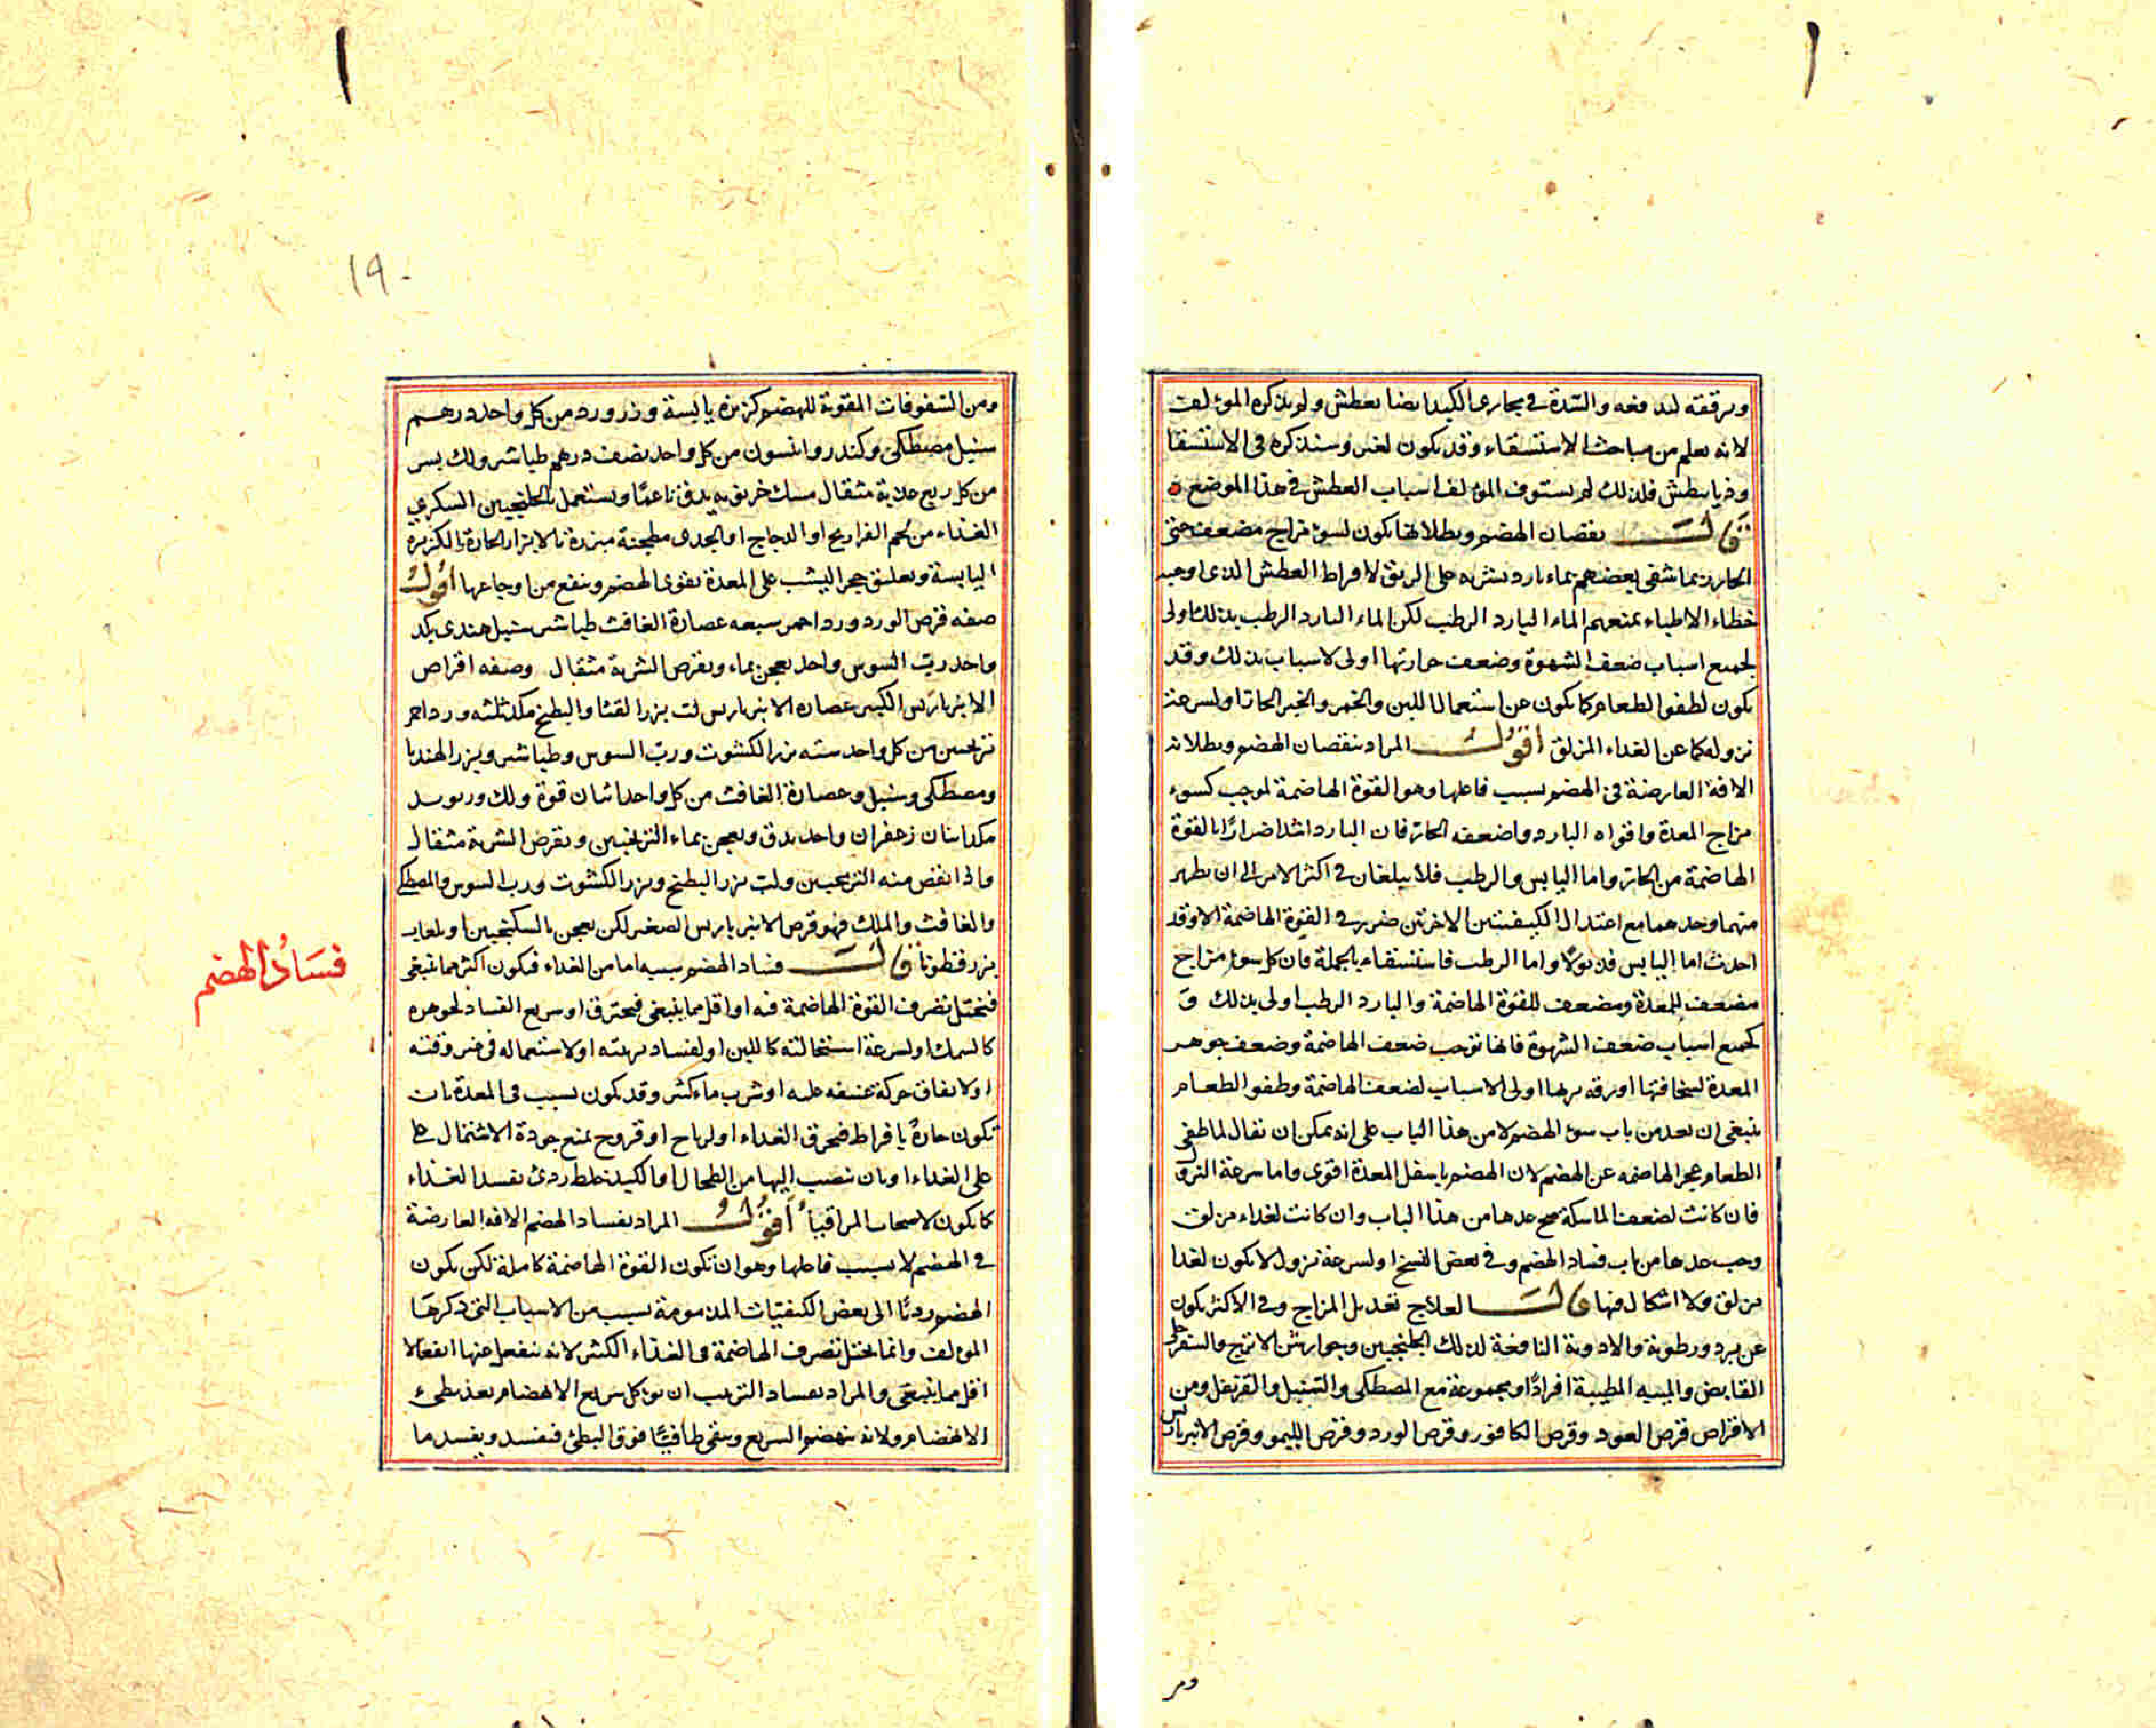 ويرققه ليدفعه والسدة في مجارى الكبد ايضا يعطش ولم يذكره المؤلف
لانه يعلم من مباحث الاستسقاء وقد يكون لغير وسنذكره فى الاستسقا
وذيابيطش فلذلك لم يستوف المؤلف اسباب العطش في هذا الموضع
قالــــ نقصان الهضم وبطلانها يكون لسوء مزاج مضعف حتى
الحار ربما شفى بعضهم بماء بارد يشربه على الريق لافراط العطش الذى اوجبه
خطاء الاطباء بمنعهم الماء البارد الرطب لكن الماء البارد الرطب بذلك اولى
لجميع اسباب ضعف الشهوة وضعف حرارتها اولى لاسباب بذلك وقد
يكون لطفو الطعام كما يكون عن استعمال اللبن والخمر والخبز الحار او لسرعة
نزوله كما عن الغداء المزلق اقولــــ المراد بنقصان الهضم وبطلانه
الافة العارضة في الهضم بسبب فاعلها وهو القوة الهاضمة لموجب كسوء
مزاج المعدة واقواه البارد واضعفه الحار فان البارد اشد اضرارًا بالقوة
الهاضمة من الحار واما اليابس والرطب فلا يبلغان في اكثر الامر الى ان يظهر
منهما وحدهما مع اعتدال الكيفيتين الاخرتين ضرر في القوة الهاضمة الا وقد
احدث اما اليابس فذبولا واما الرطب فاستسقاء بالجملة فان كل سوء مزاج
مضعف للمعدة ومضعف للقوة الهاضمة والبارد الرطب اولى بذلك و
كجميع اسباب ضعف الشهوة فانها توجب ضعف الهاضمة وضعف جوهر
المعدة لسخافتها او رقه بربها اولى الاسباب لضعف الهاضمة وطفو الطعام
ينبغى ان يعد من باب سوء الهضم لا من هذا الباب على انه يمكن ان يقال لما طفى
الطعام عجز الهاضمه عن الهضم لان الهضم باسفل المعدة اقوى واما سرعة النزول
فان كانت لضعف الماسكة صح عدها من هذا الباب وان كانت لغداء مزلق
وجب عدها من باب فساد الهضم وفي بعض النسخ او لسرعة نزول لا يكون لغدا
مزلق ولا اشكال فيها قالــــ العلاج تعديل المزاج وفي الاكثر يكون
عن برد ورطوبة والادوية النافعة لذلك الجلنجبين وجوارشن الاترج والسفرجلى
القابض والميبه المطيبة افرادًا او مجموعة مع المصطكى والسنبل والقرنفل ومن
الاقراص قرص العود وقرص الكافور وقرص الورد وقرص الليمو وقرص الانبرباريس
ومن
١٩٠
ومن السفوفات المقوية للهضم كزبرة يابسة وزر ورد من كل واحد درهم
سنبل مصطكى وكندر وانسون من كل واحد نصف درهم طباشير ولك بسر
من كل ربع مثقال مسك خروبه يدق ناعمًا ويستعمل بالجلنجبين السكري
الغذاء من لحم الفراريج او الدجاج او الجدى مطجنة مبزرة بالابزار الحارة بالكزبرة
اليابسة وتعليق حجر اليشب على المعدة يقوى الهضم وينفع من اوجاعها اقول
صفه قرص الورد ورد احمر سبعه عصارة الغافث طباشير سنبل هندى يكد
واحد رب السوس واحد يعجن بماء ويقرص الشربة مثقال وصفه اقراص
الانبرباريس الكبير عصاره الانبرباريس لب بزر القثا والبطيخ مكد ثلثه ورد احمر
ترنجبين من كل واحد سته بزر الكشوث ورب السوس وطباشير وبزر الهندبا
ومصطكى وسنبل وعصارة الغافث من كل واحد اثنان فوة ولك وريوند
مكد اثنان زعفران واحد يدق ويعجن بماء الترنجبين ويقرص الشربة مثقال
واذا نقص منه الترنجبين ولب بزر البطيخ وبزر الكشوث ورب السوس والمصطكى
والغافث واللك فهو قرص الانبرباريس الصغير لكن يعجن بالسكنجبين او بلعاب
بزر قطونا قالــــ فساد الهضم سببه اما من الغداء فيكون اكثر مما ينبغى
فيختل تصرف القوة الهاضمة فيه او اقل مما ينبغى فيحترق او سريع الفساد لجوهره
كالسمك او لسرعة استحالته كاللبن او لفساد ترتيبه او لاستعماله في غير وقته
او لاتفاق حركة عنيفه عليه او شرب ماء كثير وقد يكون بسبب فى المعدة بان
تكون حارةً بافراط فيحرق الغداء او لرياح او قروح يمنع جودة الاشتمال على
على الغداء او بان تنصب اليها من الطحال او الكبد خلط ردئ يفسد الغذاء
كما يكون لاصحاب المراقيا اقولــــ المراد بفساد الهضم الافة العارضة
في الهضم لا بسبب فاعلها وهو ان تكون القوة الهاضمة كاملة لكن يكون
الهضم رديًا الى بعض الكيفيات المذمومة بسبب من الاسباب التى ذكرها
المولف وانما يختل تصرف الهاضمة فى الغذاء الكثير لانه ينفعل عنها انفعالا
اقل مما ينبغى والمراد بفساد الترتيب ان يوكل سريع الانهضام بعد بطىء
الانهضام ولانه ينهضم السريع ويبقى طافيًا فوق البطئ فيفسد ويفسد ما
فسَادُ الهضم